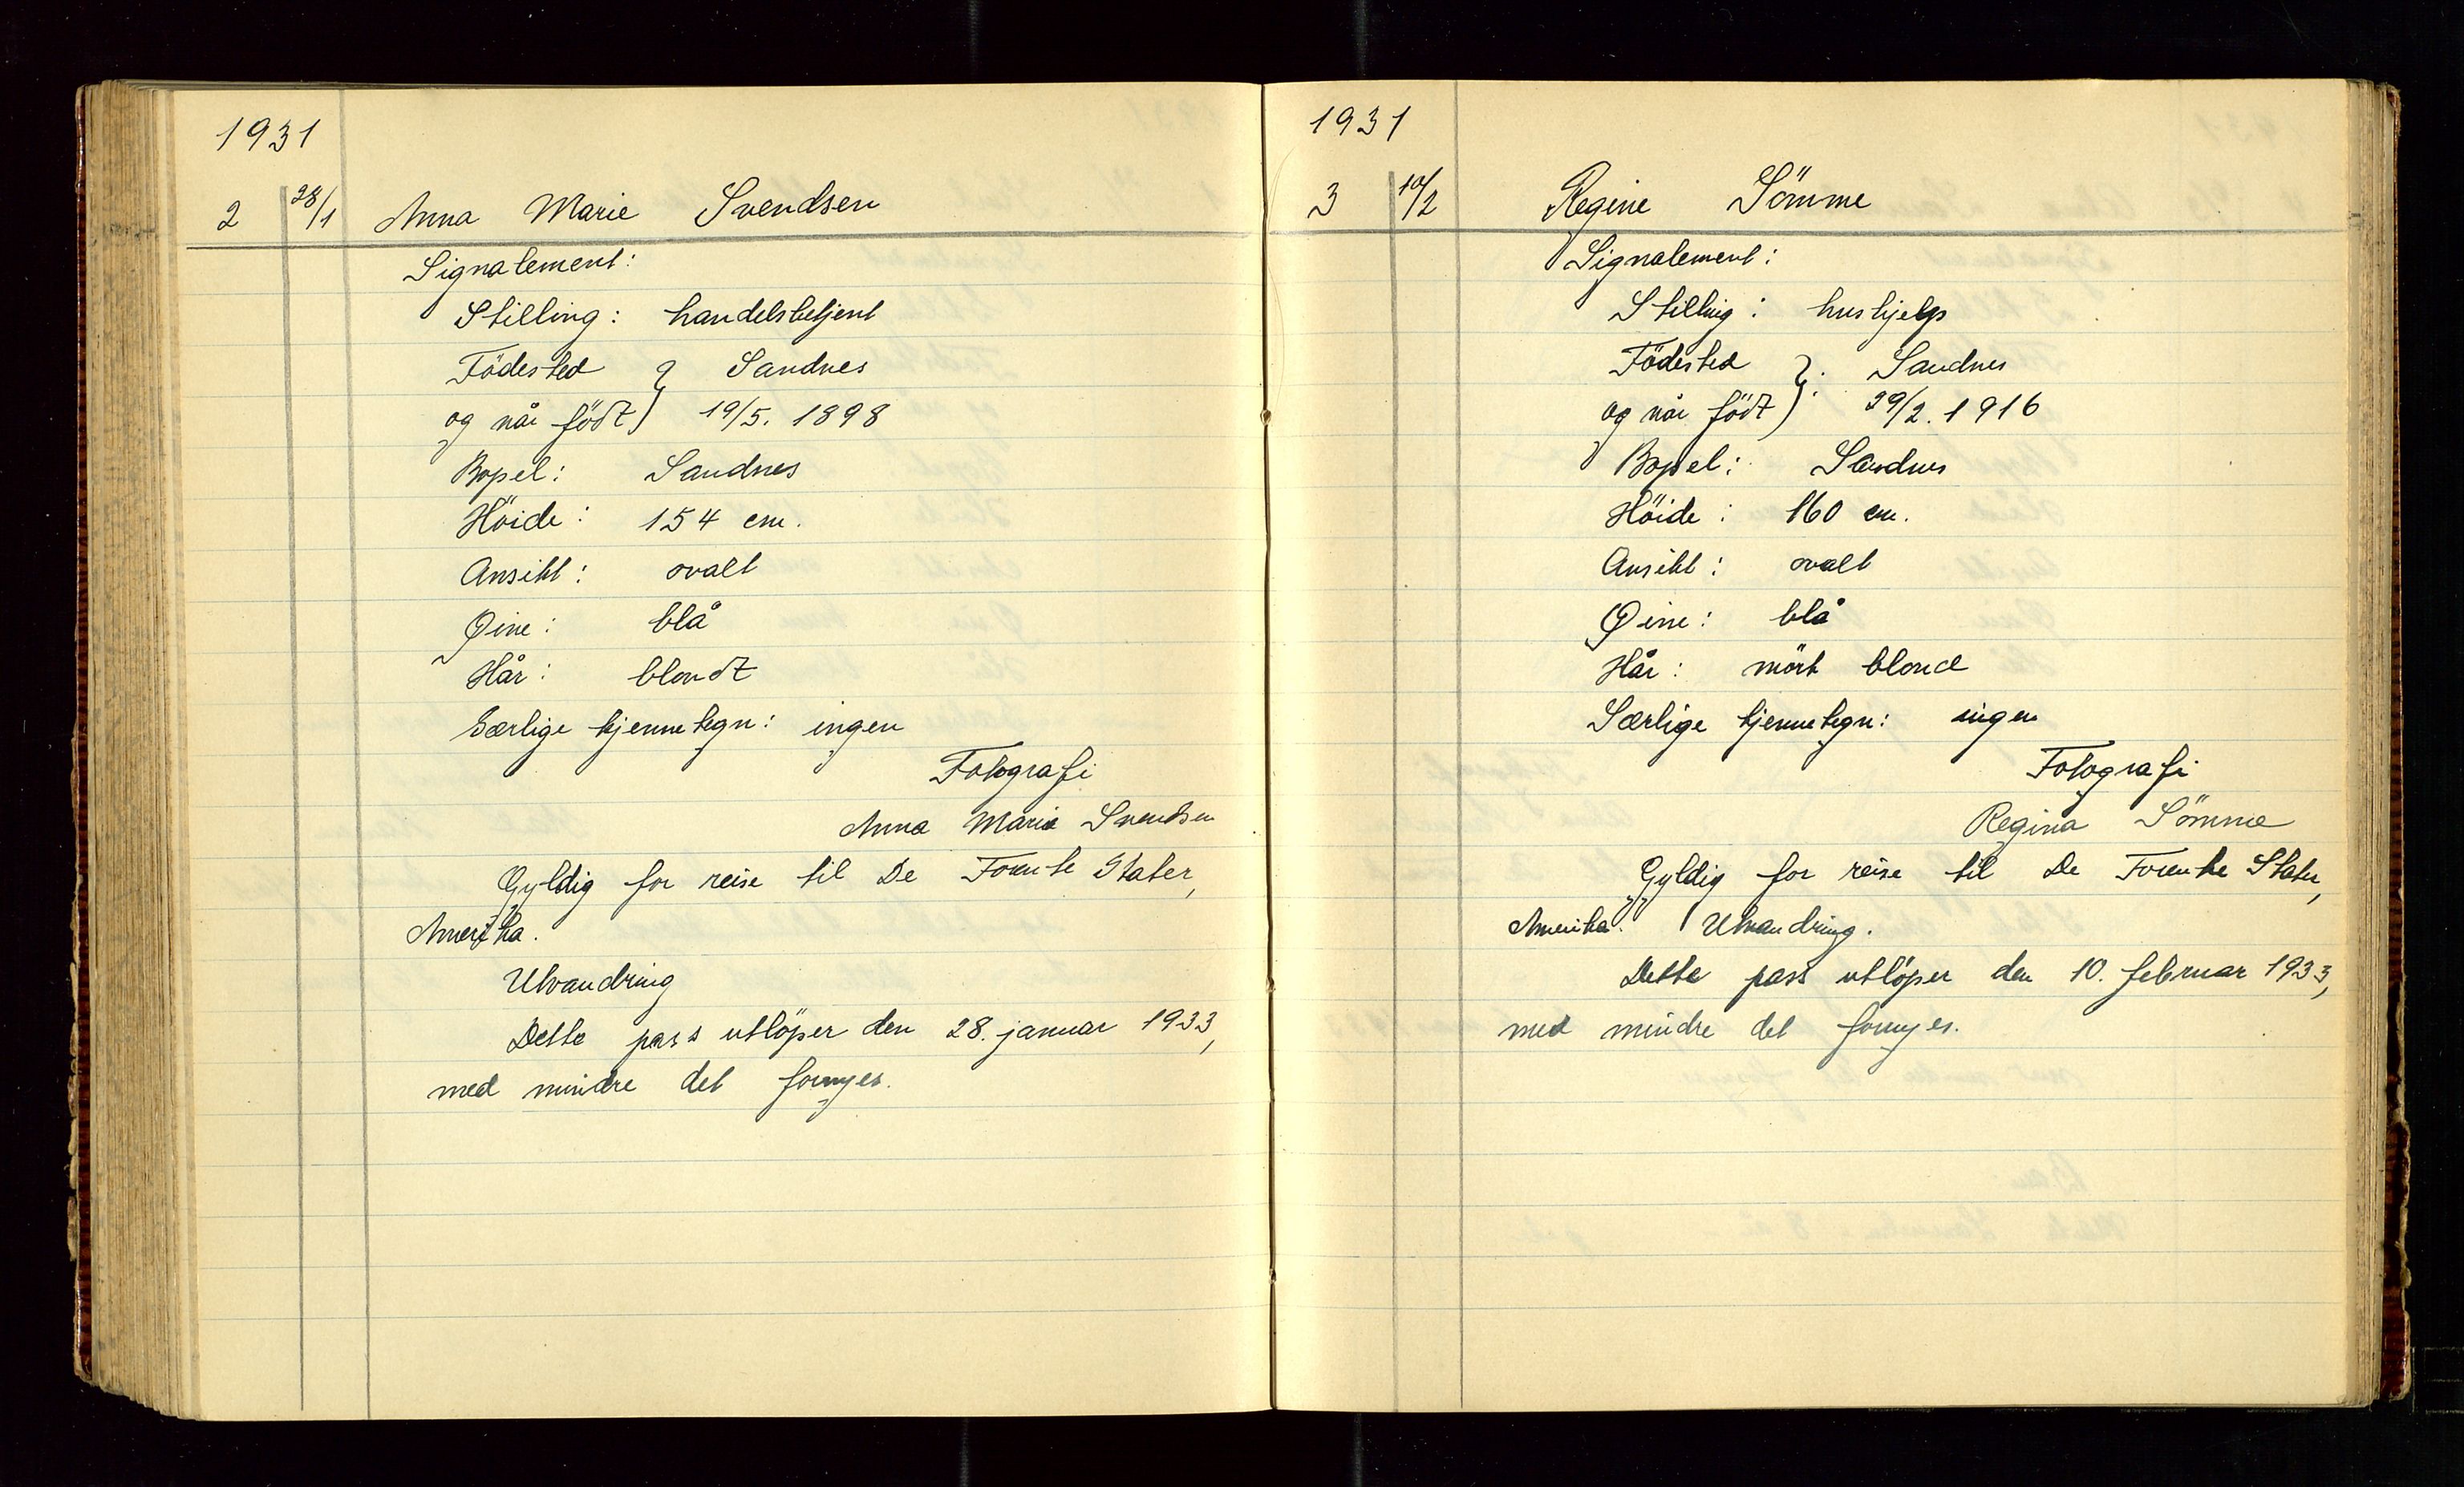 1931
2 28/1 Anna Marie Svendsen
Signalement:
Stilling: handelsbetjent
Födested } Sandnes
og når födt } 19/5. 1898
Bopel: Sandnes
Höide: 154 cm.
Ansikt: ovalt
Øine: blå
Hår: blondt
Særlige kjennetegn: ingen
Fotografi
Anna Marie Svendsen
Gyldig for reise til De Forente Stater,
Amerika.
Utvandring
Dette pass utlöper den 28. januar 1933,
med mindre det fornyes.
1931
3 10/2 Regine Sömme
Signalement:
Stilling: hushjelp
Födested } : Sandnes
og når födt } 29/2. 1916
Bopel: Sandnes
Höide: 160 cm.
Ansikt: ovalt
Øine: blå
Hår: mörk blond
Særlige kjennetegn: ingen
Fotografi
Regina Sömme
Gyldig for reise til De Forente Stater,
Amerika. Utvandring.
Dette pass utlöper den 10. februar 1933,
med mindre det fornyes.